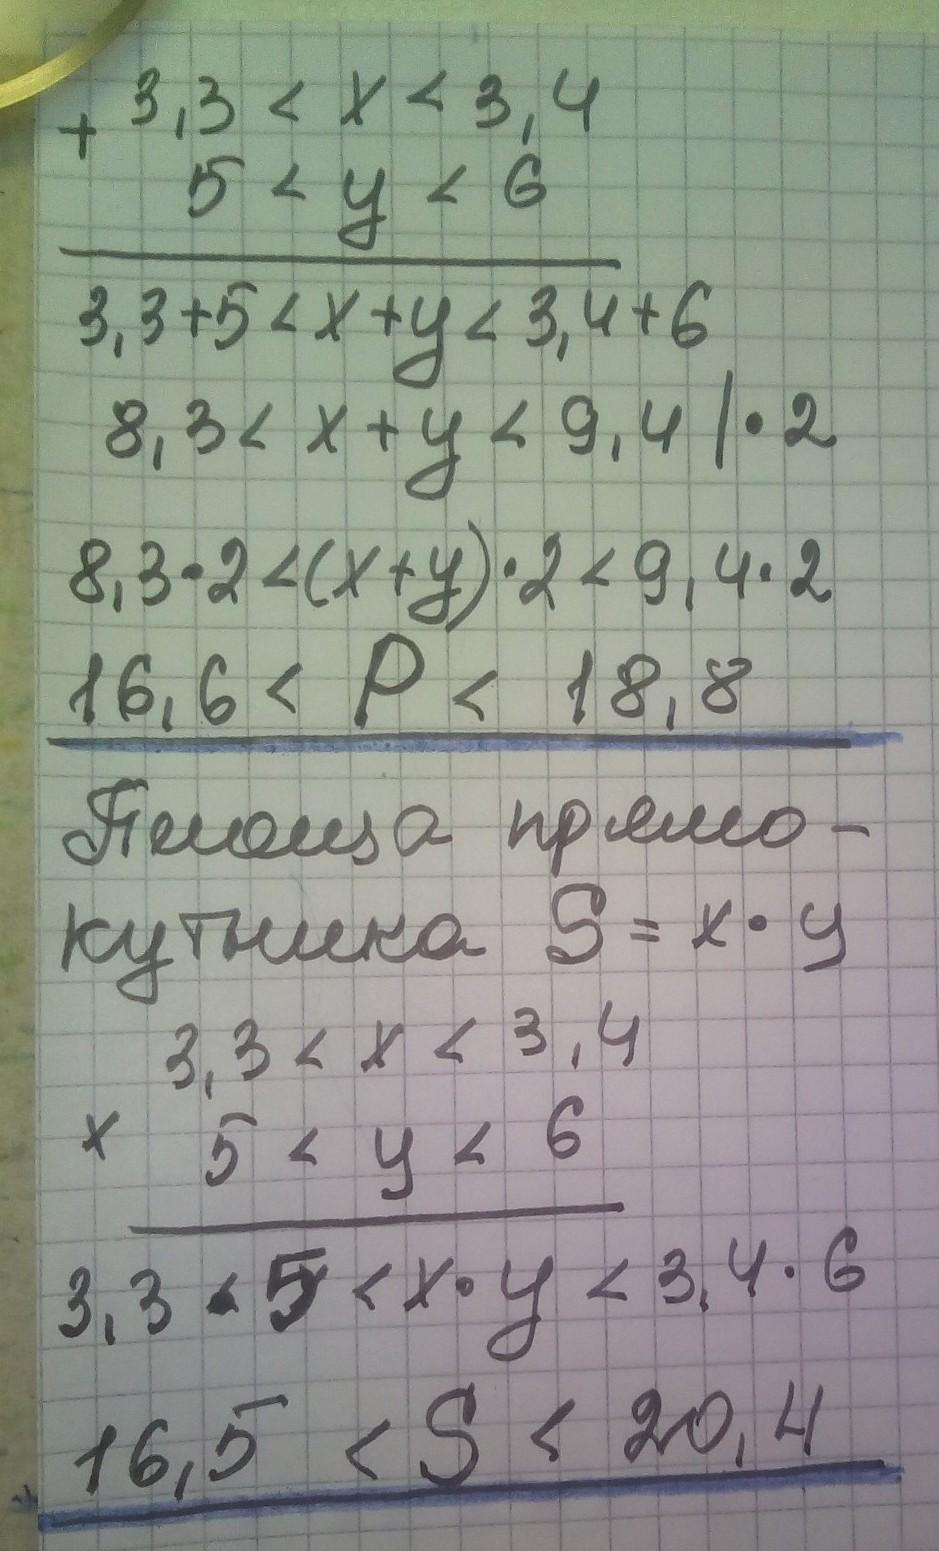 3,3 < x < 3,4
+
5 < y < 6
3,3+5 < x+y < 3,4+6
8,3 < x+y < 9,4 | · 2
8,3·2 < (x+y)·2 < 9,4·2
16,6 < P < 18,8
Площа прямо-
кутника S = x · y
3,3 < x < 3,4
×
5 < y < 6
3,3 · 5 < x·y < 3,4·6
16,5 < S < 20,4